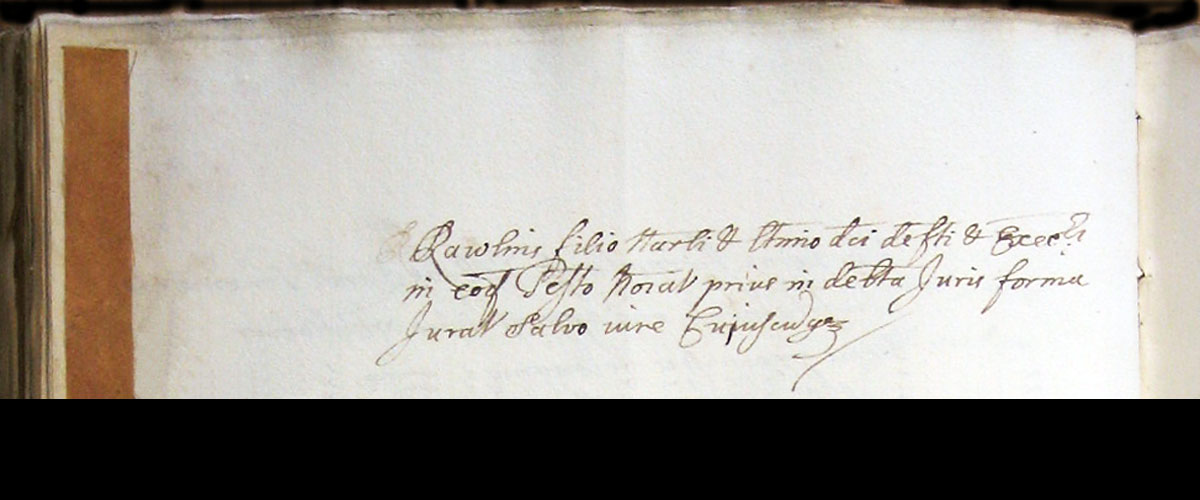 Rawlins filio natli & ltimo dci defti & Execri
in eod Testo noiat prius in debta Juris forma
Jurat Salvo iure Cujuscunq